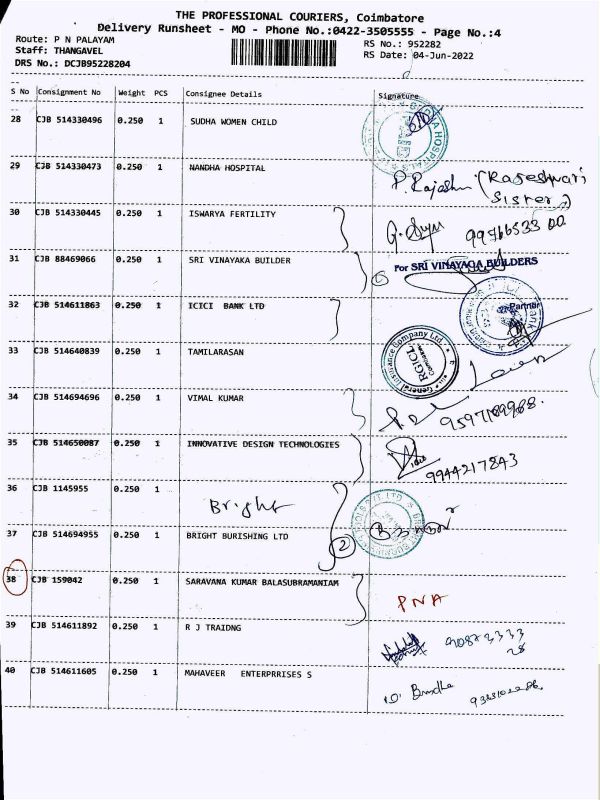 THE PROFESSIONAL COURIERS, Coimbatore
Delivery Runsheet - MO - Phone No.:0422-3505555 - Page No.:4
Route: P N PALAYAM RS No.: 952282
Staff: THANGAVEL RS Date: 04-Jun-2022
DRS No.: DCJB95228204
S No Consignment No Weight PCS Consignee Details Signature
28 CJB 514330496 0.250 1 SUDHA WOMEN CHILD
29 CJB 514330473 0.250 1 NANDHA HOSPITAL
P. Rajashri (Rajeshwari
Sister)
30 CJB 514330445 0.250 1 ISWARYA FERTILITY
31 CJB 88469066 0.250 1 SRI VINAYAKA BUILDER
For SRI VINAYAGA BUILDERS
Partner
32 CJB 514611863 0.250 1 ICICI BANK LTD
33 CJB 514640839 0.250 1 TAMILARASAN
General Insurance Company Ltd.
RGICL
34 CJB 514694696 0.250 1 VIMAL KUMAR
9597189988.
35 CJB 514650087 0.250 1 INNOVATIVE DESIGN TECHNOLOGIES
9944217843
36 CJB 1145955 0.250 1
Bright
37 CJB 514694955 0.250 1 BRIGHT BURISHING LTD
2
38 CJB 159042 0.250 1 SARAVANA KUMAR BALASUBRAMANIAM
PNA
39 CJB 514611892 0.250 1 R J TRAIDNG
40 CJB 514611605 0.250 1 MAHAVEER ENTERPRRISES S